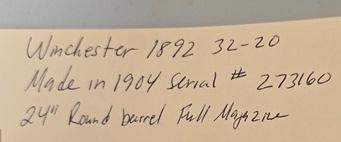 Winchester 1892 32-20
Made in 1904 Serial # 273160
24" Round barrel Full Magazine